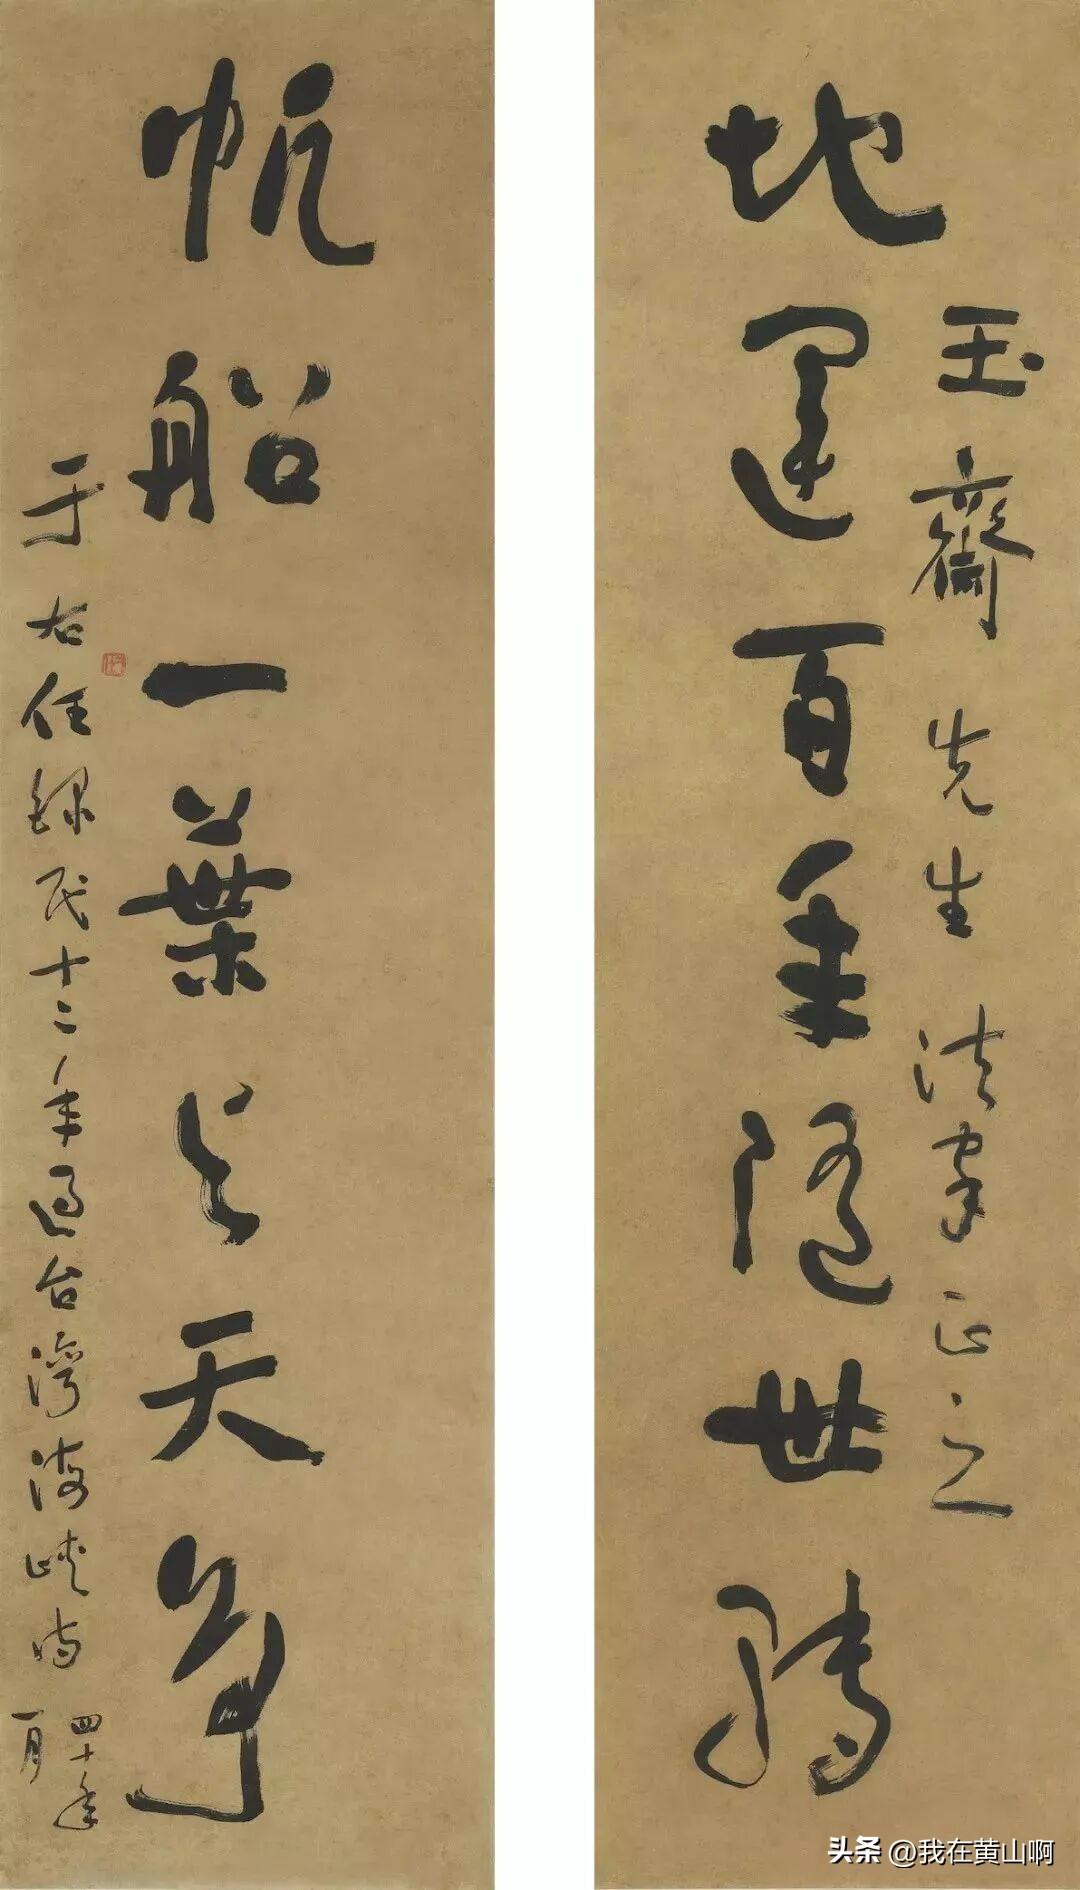 玉齋先生法家正之
地運百年隨世轉
帆船一葉與天爭
于右任錄民十二年過台灣海峽時
四十年
一月
头条 @我在黄山啊